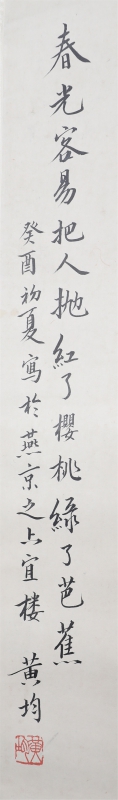 春光容易把人抛紅了櫻桃綠了芭蕉
癸酉初夏寫於燕京之上宜楼 黄均